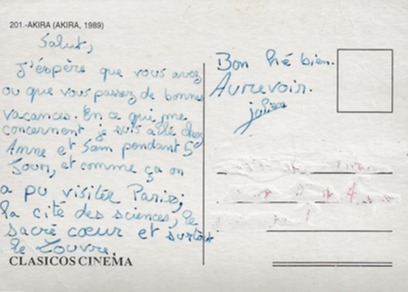 201.-AKIRA (AKIRA, 1989)
Salut,
J'éspère que vous avez
ou que vous passez de bonnes
vacances. En ce qui me
concernent je suis allé chez
Anne et Sam pendant 5
Jours, et comme ça on
a pu visiter Paris;
la cité des sciences, le
sacré cœur et surtout
le Louvre.
CLASICOS CINEMA
Bon hé bien.
Aurevoir.
julien